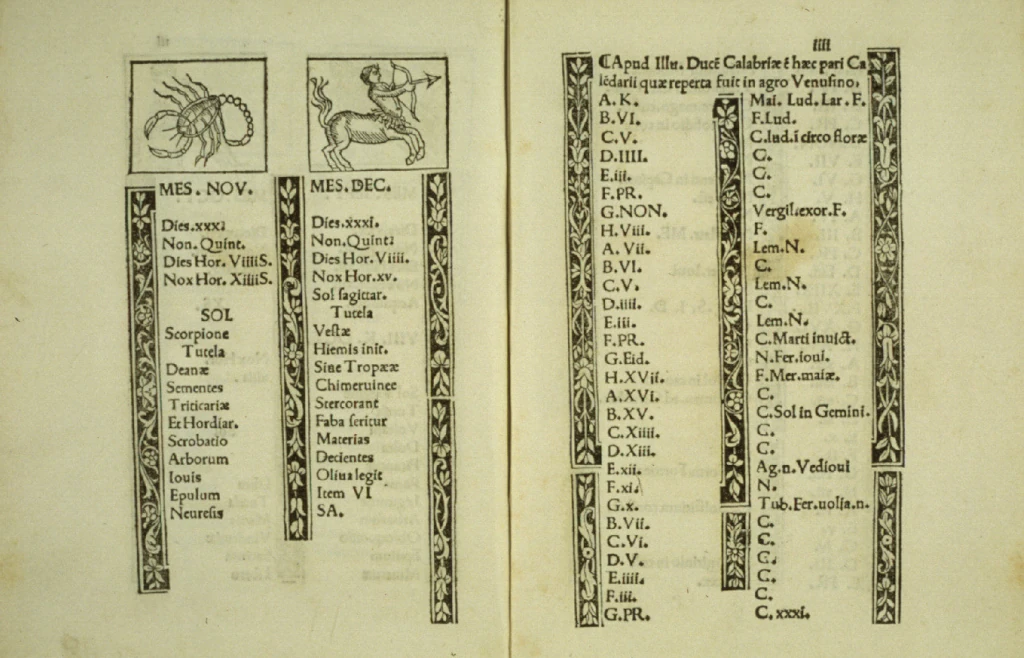 MES. NOV.
Dies.xxxi
Non. Quint.
Dies Hor. VIIIIS.
Nox Hor. XIIIIS.
SOL
Scorpione
Tutela
Deanæ
Sementes
Triticariæ
Et Hordiar.
Scrobatio
Arborum
Iouis
Epulum
Neuresis
MES. DEC.
Dies.xxxi.
Non. Quint:
Dies Hor. Viiii.
Nox Hor. xv.
Sol sagittar.
Tutela
Vestæ
Hiemis init.
Siue Tropææ
Chimeruince
Stercorant
Faba seritur
Materias
Decientes
Oliua legit
Item VI
SA.
IIII
CApud Illu. Ducē Calabriæ ē hæc pari Ca
lēdarii quæ reperta fuit in agro Venusino,
A. K. Mai. Lud. Lar. F.
B. VI. F. Lud.
C. V. C. lud. ī circo floræ
D. IIII. C.
E. iii. C.
F. PR. C.
G. NON. Vergil. exor. F.
H. Viii. F.
A. Vii. Lem. N.
B. VI. C.
C. V. Lem. N.
D. iiii. C.
E. iii. Lem. N.
F. PR. C. Marti inuict.
G. Eid. N. Fer. ioui.
H. XVii. F. Mer. maiæ.
A. XVi. C.
B. XV. C. Sol in Gemini.
C. Xiiii. C.
D. Xiii. C.
E. xii. Ag. n. Vedioui
F. xi. N.
G. x. Tub. Fer. uolca. n.
B. Vii. C.
C. Vi. C.
D. V. C.
E. iiii. C.
F. iii. C.
G. PR. C. xxxi.